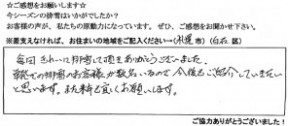 ☆ご感想をお願いします☆
今シーズンの排雪はいかがでしたか？
お客様の声が、私たちの原動力になっています。ぜひ、ご感想をお聞かせ下さい。
※差支えなければ、お住まいの地域をご記入ください→（札幌 市）（白石 区）
毎回 きれいに排雪して頂きありがとうございました。
排雪のお客様が数名いるので 今後もご紹介していきたい
と思います。また来年も宜しくお願いします。
ご協力ありがとうございました！